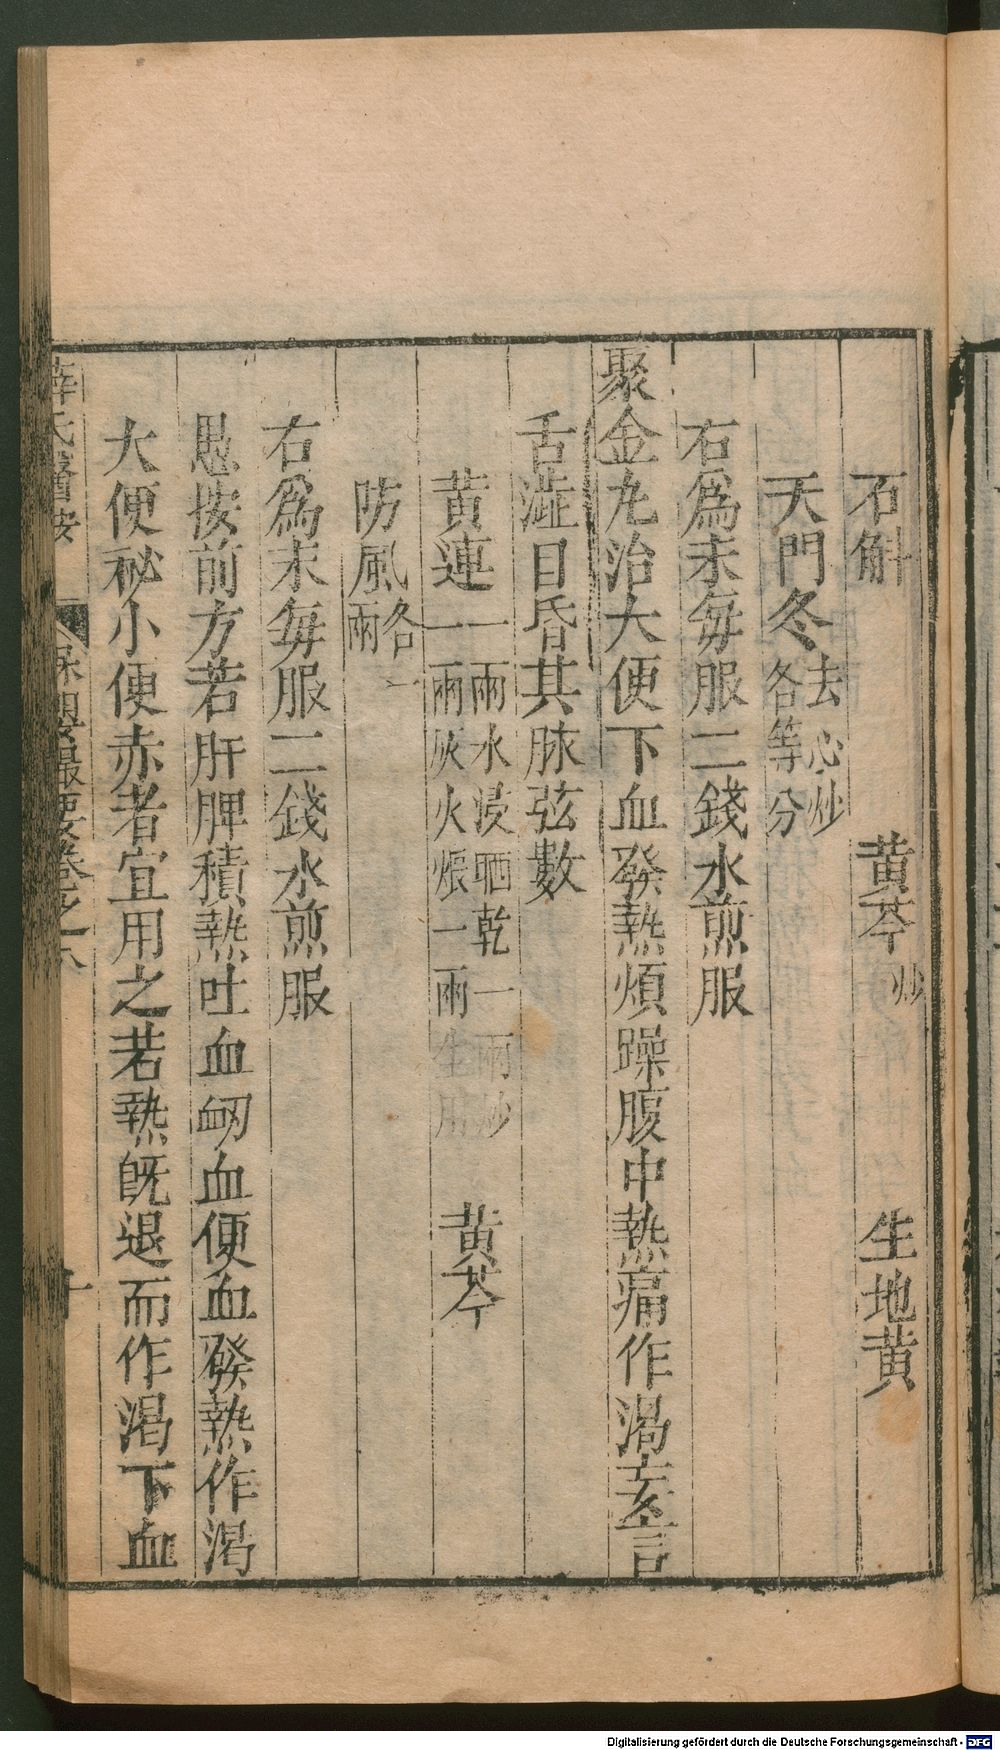 石斛　黄芩炒　生地黄
天門冬去心炒各等分
右為末每服二錢水煎服
聚金丸治大便下血發熱煩躁腹中熱痛作渴
言
舌澁目昏其脉弦數
黄連一兩水浸晒乾一兩炒一兩灰火煨一兩生用　黄芩
防風各一兩
右為末每服二錢水煎服
愚按前方若肝脾積熱吐血衂血便血發熱作渴
大便祕小便赤者宜用之若熱既退而作渴下血
薛氏醫按　保嬰撮要卷之六　十
Digitalisierung gefördert durch die Deutsche Forschungsgemeinschaft - DFG